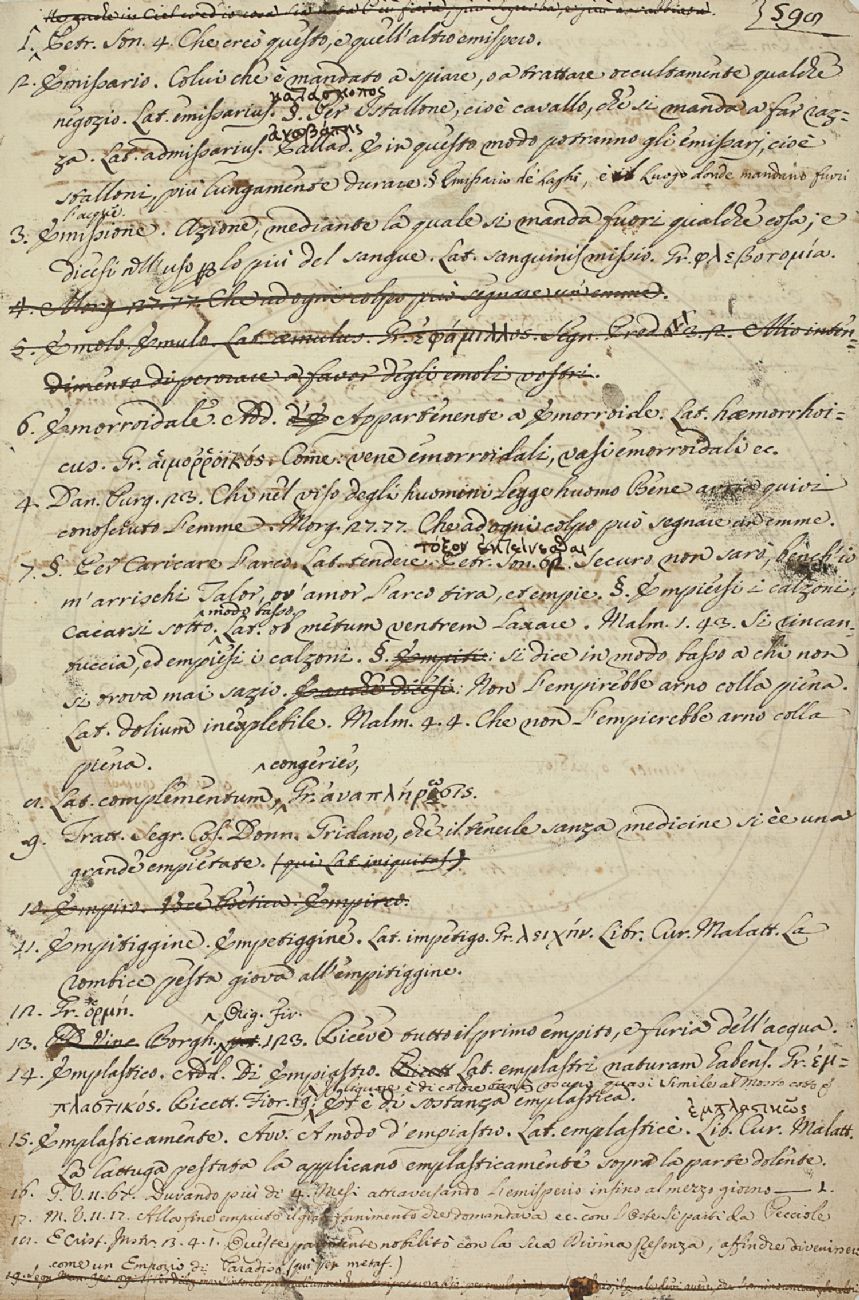 599
1. Petr. Son. 4. Che creò questo, e quell'altro emispero.
2. Emissario. Colui che è mandato a spiare, o a trattare occultamente qualche
κατάσκοπος
negozio. Lat. emissarius. §. Per istallone, cioè cavallo, che si manda a far raz=
ἀναβάτης
za. Lat. admissarius. Pallad. E in questo modo potranno gli emissarj, cioè
stalloni, più lungamente durare. § Emissario de' Laghi, è Luogo donde mandano fuori
l'acque.
3. Emissione. Azione, mediante la quale si manda fuori qualche cosa; e
dicesi nell'uso p lo più del sangue. Lat. sanguinis missio. Gr. φλεβοτομία.
4. Morg. 27.77. Che ad ogni colpo può segnare un emme.
5. Emolo. Emulo. Lat. æmulus. Gr. ἐφάμιλλος. Segn. Pred. 3.2. Mio inten=
dimento di perorare a favor degli emoli vostri.
6. Emorroidale. Add. Appartenente a Emorroide. Lat. hæmorrhoi=
cus. Gr. αἱμοῤῥοϊκός. Come: vene emorroidali, vasi emorroidali ec.
4. Dan. Purg. 23. Chi nel viso degli huomini Legge huomo Bene avria quivi
conosciuto l'emme. Morg. 27.77. Che ad ogni colpo può segnare un emme.
τόξον ἐκτείνεσθαι
7. §. Per Caricare l'arco. Lat. tendere. Petr. Son. 62. Securo non sarò, bench'io
m'arrischi Talor, ov'amor l'arco tira, et empie. §. Empiersi i calzoni,
modo basso
Cacarsi sotto. Lat. ob metum ventrem laxare. Malm. 1. 43. Si rincan=
tuccia, ed empiesi i calzoni. §. Empiti: si dice in modo basso a chi non
si trova mai sazio. Non l'empirebbe arno colla piena.
Lat. dolium inexplebile. Malm. 4. 4. Che non l'empierebbe arno colla
piena.
congeries,
8. Lat. complementum, Gr. ἀναπλήρωσις.
9. Tratt. Segr. Cos. Donn. Gridano, che il tenerle sanza medicine si è e una
grande empietate. (qui Lat. iniquitas)
10. Empiro. Voce Poetica. Empireo.
11. Empitiggine. Empetiggine. Lat. impetigo. Gr. λειχήν. Libr. Cur. Malatt. La
rombice pesta giova all'empitiggine.
12. Gr. ὁρμή.
Orig. Fir.
13. Borgh. 123. Riceve tutto il primo empito, e furia dell'acqua.
14. Emplastico. Add. Di Empiastro. Lat. emplastri naturam habens. Gr. ἐμ=
πλαστικός. Ricett. Fior. 19. Et è di sostanza emplastica.
ἐμπλαστικῶς
15. Emplasticamente. Avv. A modo d'empiastro. Lat. emplasticè. Lib. Cur. Malatt.
La lattuga pestata la applicano emplasticamente sopra la parte dolente.
16. G. V. 11. 67. Durando più di 4. Mesi attraversando l'emisperio infino al mezzo giorno — 1.
17. M. V. 11. 17. Alla fine empiuto il fornimento che domandava ec. con l'Oste si partì da Peccioli
18. E Crist. Instr. 3. 4. 1. nobilitò con la sua Divina Presenza, affinchè divenisse
come un Emporio di Paradiso (qui per metaf.)